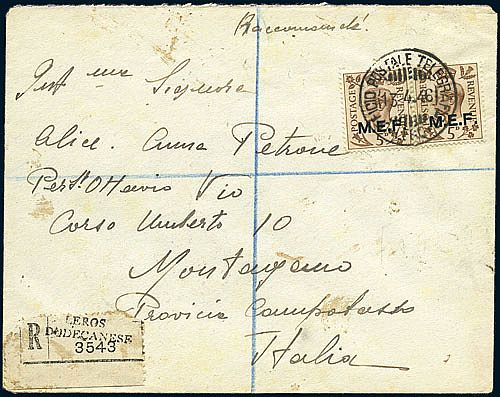 Raccomandé
Pert.ma Signora
Alice. Anna Petrone
Per S. Ottavio Vio
Corso Umberto 10
Montagano
Provincia Campobasso
Italia
POSTAGE REVENUE
POSTAGE REVENUE
M.E.F. M.E.F.
5D 5D
POSTALE TELEGRAFI
.4.46
R LEROS
DODECANESE
3543